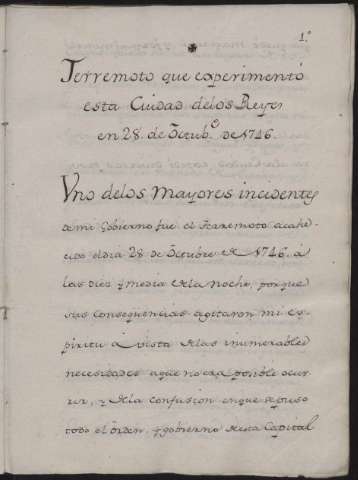 1.º
Terremoto que experimentó
esta Ciudad delos Reyes
en 28 de Octubᵉ de 1746.
Vno delos Mayores incidentes
de mi Gobierno fue el terremoto acahe-
cido el dia 28 de Octubre de 1746. á
las diez y media dela Noche, porque
sus Consequencias agitaron mi es-
piritu a vista delas inumerables
necesidades aque no era posible ocur-
rir, y dela confusion enque se puso
todo el órden, y gobierno desta Capital